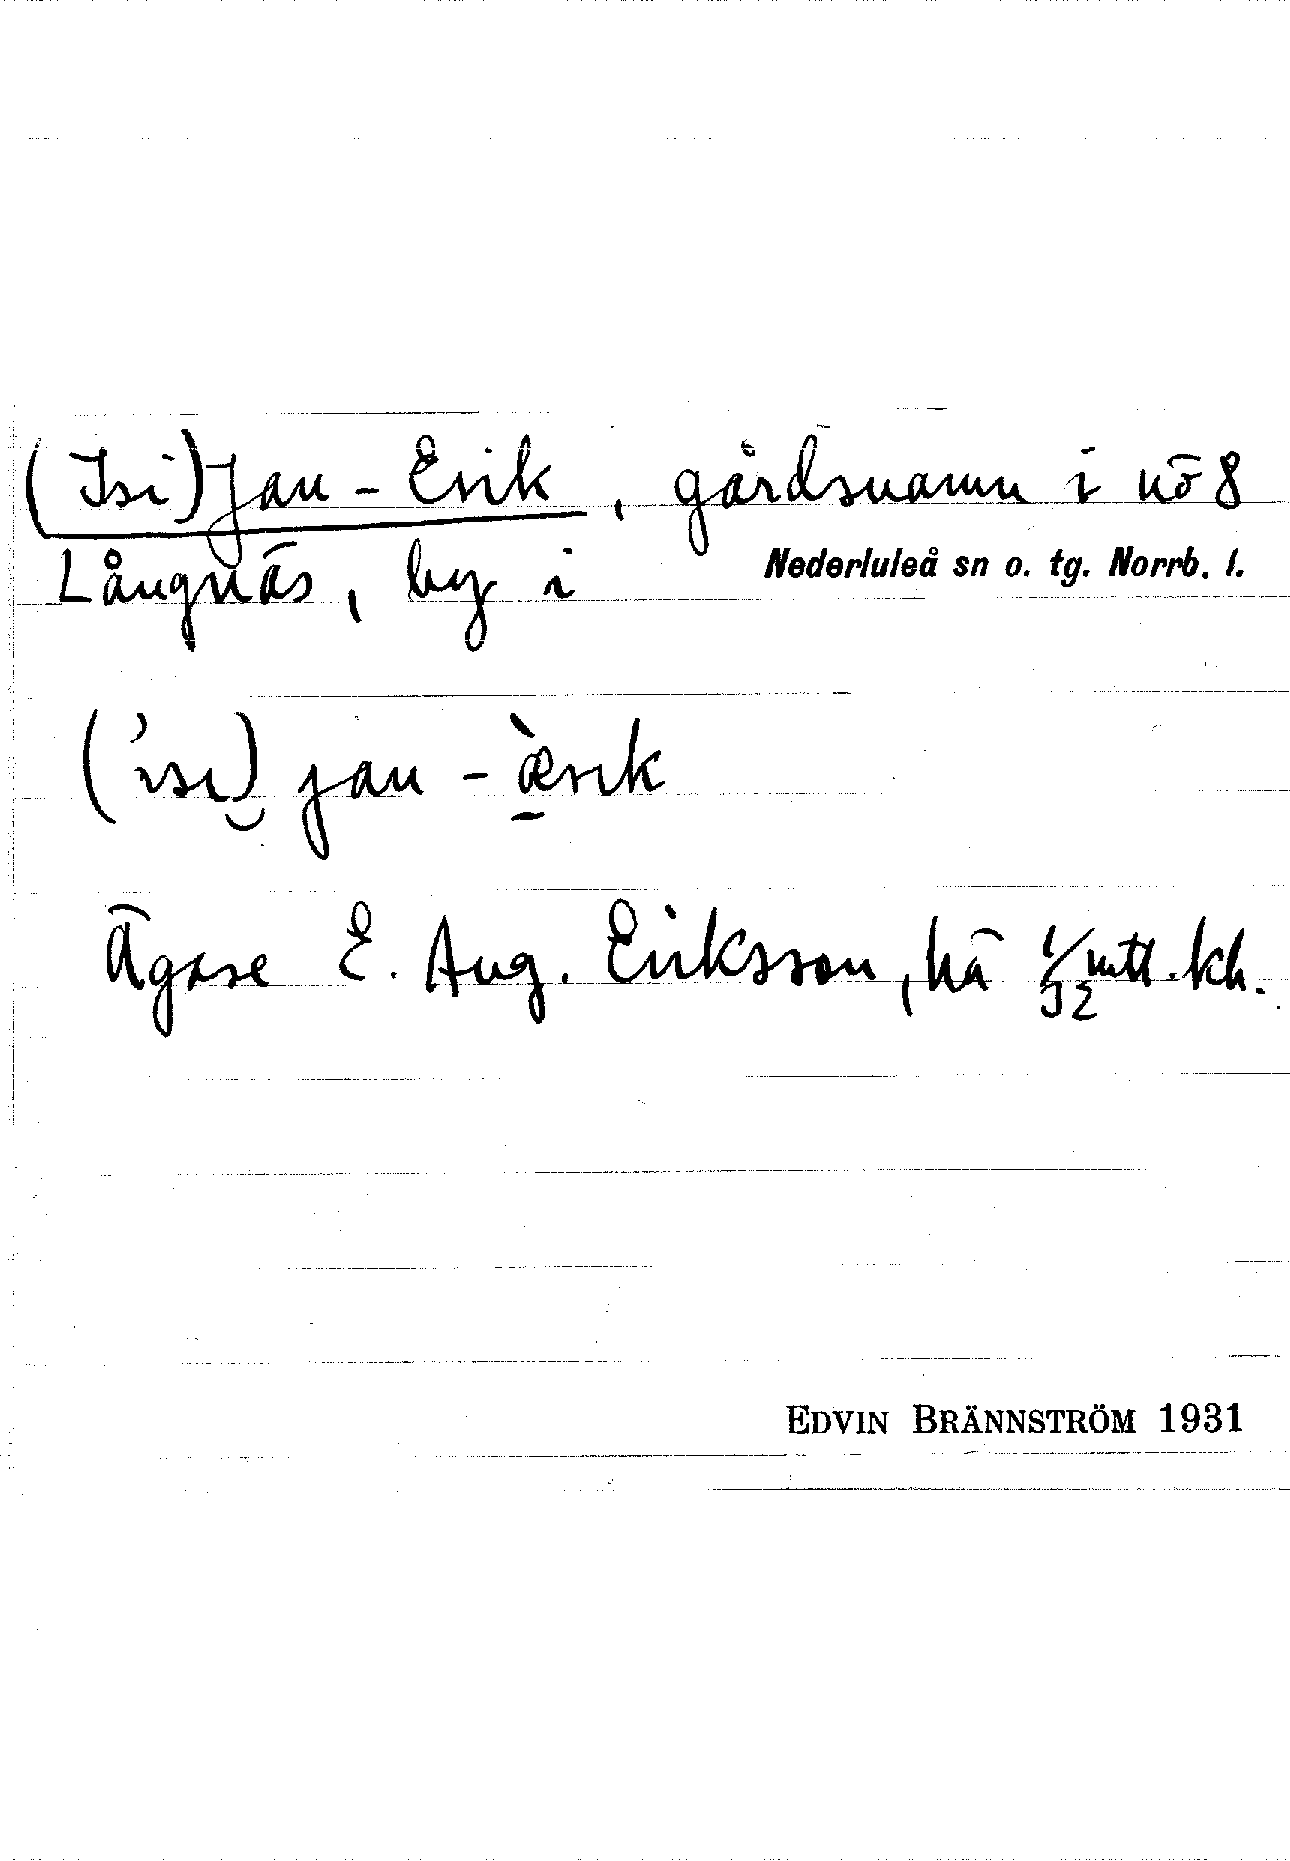 (Isi)Jan-Erik, gårdsnamn i nö 8
Långnäs, by i Nederluleå sn o. tg. Norrb. l.
('ısı) jan - æ̀rık
Ägare E. Aug. Eriksson, hä 1/32 mtl. kh.
EDVIN BRÄNNSTRÖM 1931